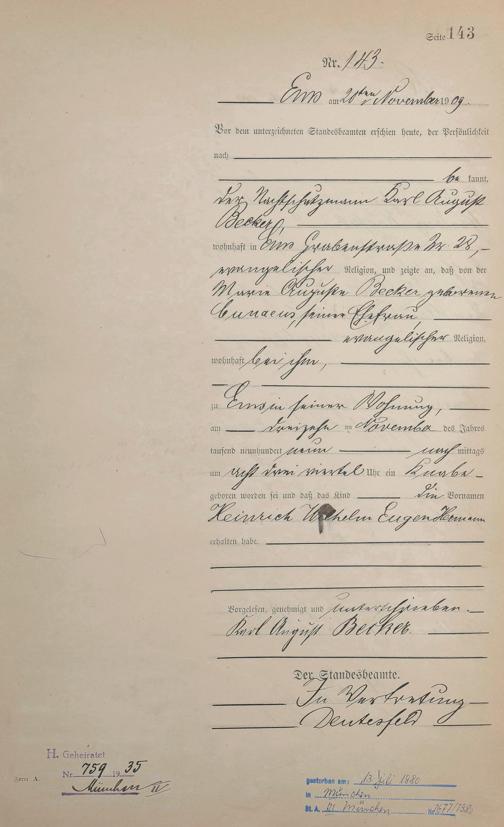 Seite 143
Nr. 143.
Ems am 20ten November 1909.
Vor dem unterzeichneten Standesbeamten erschien heute, der Persönlichkeit
nach
be kannt,
der Nachtschutzmann Karl August
Becker,
wohnhaft in Ems Grabenstraße Nr 28,
evangelischer Religion, und zeigte an, daß von der
Marie Auguste Becker geborenen
Cunaeus, seiner Ehefrau,
evangelischer Religion,
wohnhaft bei ihm,
zu Ems in seiner Wohnung,
am dreizehn ten November des Jahres
tausend neunhundert neun nach mittags
um acht drei viertel Uhr ein Knabe
geboren worden sei und daß das Kind die Vornamen
Heinrich Wilhelm Eugen Hermann
erhalten habe.
Vorgelesen, genehmigt und unterschrieben.
Karl August Becker.
Der Standesbeamte.
In Vertretung
H. Geheiratet
Nr. 759 1935
München II
Form A.
gestorben am: 13. Juli 1980
in München
St.A. München Nr.